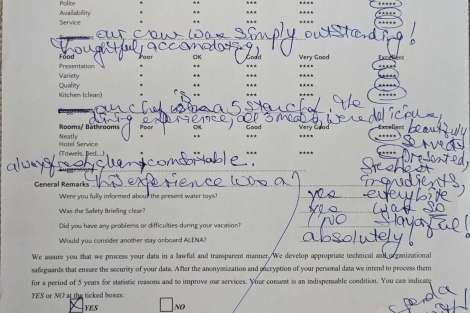 Polite * ** *** **** *****
Availability * ** *** **** *****
Service * ** *** **** *****
our crew was simply outstanding!
thoughtful, accomodating,
Food Poor OK Good Very Good Excellent
Presentation * ** *** **** *****
Variety * ** *** **** *****
Quality * ** *** **** *****
Kitchen (clean) * ** *** **** *****
our chef is a 5 star chef. We
dining experience, all 3 meals, were delicious,
beautifully
Rooms/ Bathrooms Poor OK Good Very Good Excellent
Neatly * ** *** **** *****
served
Hotel Service * ** *** **** *****
presented,
(Towels, Bed...) * ** *** **** *****
always clean, comfortable.
freshest
General Remarks This experience was a
ingredients,
Were you fully informed about the present water toys? yes every bite
Was the Safety Briefing clear? yes was so
Did you have any problems or difficulties during your vacation? no flavorful!
Would you consider another stay onboard ALENA? absolutely!
We assure you that we process your data in a lawful and transparent manner. We develop appropriate technical and organizational
safeguards that ensure the security of your data. After the anonymization and encryption of your personal data we intend to process them
for a period of 5 years for statistic reasons and to improve our services. Your consent is an indispensable condition. You can indicate
YES or NO at the ticked boxes:
YES NO